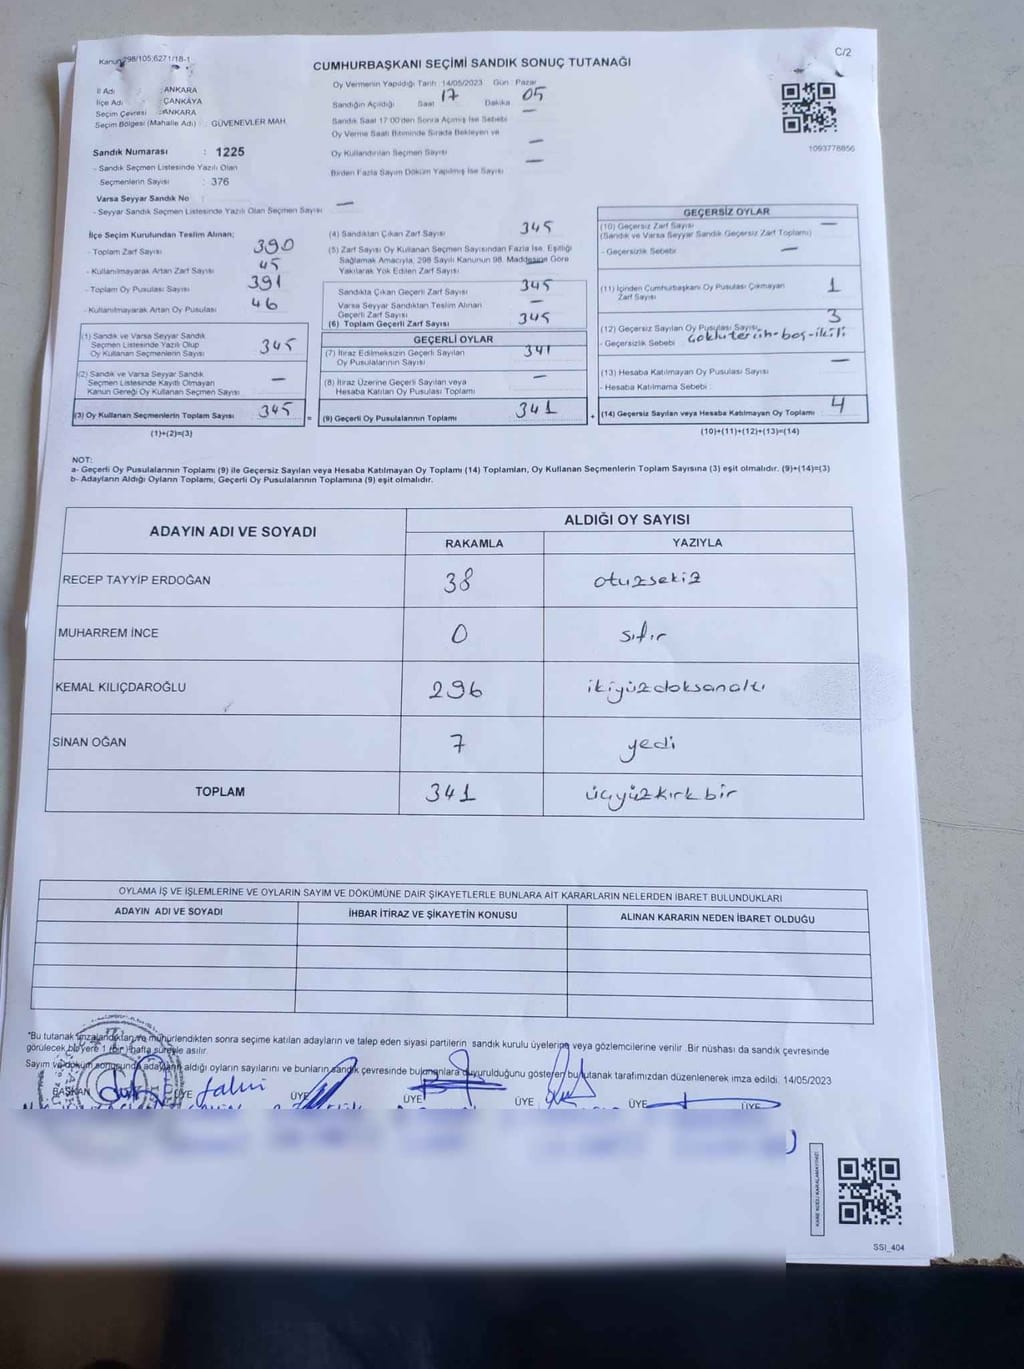 Kanun 298/105;6271/18-1
C/2
CUMHURBAŞKANI SEÇİMİ SANDIK SONUÇ TUTANAĞI
İl Adı : ANKARA
İlçe Adı : ÇANKAYA
Seçim Çevresi : ANKARA
Seçim Bölgesi (Mahalle Adı) : GÜVENEVLER MAH.
Sandık Numarası : 1225
- Sandık Seçmen Listesinde Yazılı Olan
Seçmenlerin Sayısı : 376
Varsa Seyyar Sandık No :
- Seyyar Sandık Seçmen Listesinde Yazılı Olan Seçmen Sayısı —
Oy Vermenin Yapıldığı Tarih 14/05/2023 Gün Pazar
Sandığın Açıldığı Saat 17 Dakika 05
Sandık Saat 17:00'den Sonra Açılmış İse Sebebi —
Oy Verme Saati Bitiminde Sırada Bekleyen ve
Oy Kullandırılan Seçmen Sayısı —
Birden Fazla Sayım Döküm Yapılmış İse Sayısı —
1093778856
İlçe Seçim Kurulundan Teslim Alınan;
- Toplam Zarf Sayısı 390
- Kullanılmayarak Artan Zarf Sayısı 45
- Toplam Oy Pusulası Sayısı 391
- Kullanılmayarak Artan Oy Pusulası 46
(1) Sandık ve Varsa Seyyar Sandık
Seçmen Listesinde Yazılı Olup
Oy Kullanan Seçmenlerin Sayısı 345
(2) Sandık ve Varsa Seyyar Sandık
Seçmen Listesinde Kayıtlı Olmayan
Kanun Gereği Oy Kullanan Seçmen Sayısı —
(3) Oy Kullanan Seçmenlerin Toplam Sayısı 345
(1)+(2)=(3)
(4) Sandıktan Çıkan Zarf Sayısı 345
(5) Zarf Sayısı Oy Kullanan Seçmen Sayısından Fazla İse, Eşitliği
Sağlamak Amacıyla, 298 Sayılı Kanunun 98. Maddesine Göre
Yakılarak Yok Edilen Zarf Sayısı —
Sandıkta Çıkan Geçerli Zarf Sayısı 345
Varsa Seyyar Sandıktan Teslim Alınan
Geçerli Zarf Sayısı —
(6) Toplam Geçerli Zarf Sayısı 345
GEÇERLİ OYLAR
(7) İtiraz Edilmeksizin Geçerli Sayılan
Oy Pusulalarının Sayısı 341
(8) İtiraz Üzerine Geçerli Sayılan veya
Hesaba Katılan Oy Pusulası Toplamı —
= (9) Geçerli Oy Pusulalarının Toplamı 341
GEÇERSİZ OYLAR
(10) Geçersiz Zarf Sayısı —
(Sandık ve Varsa Seyyar Sandık Geçersiz Zarf Toplamı)
- Geçersizlik Sebebi —
(11) İçinden Cumhurbaşkanı Oy Pusulası Çıkmayan
Zarf Sayısı 1
(12) Geçersiz Sayılan Oy Pusulası Sayısı 3
- Geçersizlik Sebebi Çoklu tercih-boş-ikili
(13) Hesaba Katılmayan Oy Pusulası Sayısı —
- Hesaba Katılmama Sebebi :
+ (14) Geçersiz Sayılan veya Hesaba Katılmayan Oy Toplamı 4
(10)+(11)+(12)+(13)=(14)
NOT:
a- Geçerli Oy Pusulalarının Toplamı (9) ile Geçersiz Sayılan veya Hesaba Katılmayan Oy Toplamı (14) Toplamları, Oy Kullanan Seçmenlerin Toplam Sayısına (3) eşit olmalıdır. (9)+(14)=(3)
b- Adayların Aldığı Oyların Toplamı, Geçerli Oy Pusulalarının Toplamına (9) eşit olmalıdır.
ADAYIN ADI VE SOYADI
ALDIĞI OY SAYISI
RAKAMLA YAZIYLA
RECEP TAYYİP ERDOĞAN 38 otuzsekiz
MUHARREM İNCE 0 sıfır
KEMAL KILIÇDAROĞLU 296 ikiyüzdoksanaltı
SİNAN OĞAN 7 yedi
TOPLAM 341 üçyüzkırkbir
OYLAMA İŞ VE İŞLEMLERİNE VE OYLARIN SAYIM VE DÖKÜMÜNE DAİR ŞİKAYETLERLE BUNLARA AİT KARARLARIN NELERDEN İBARET BULUNDUKLARI
ADAYIN ADI VE SOYADI İHBAR İTİRAZ VE ŞİKAYETİN KONUSU ALINAN KARARIN NEDEN İBARET OLDUĞU
*Bu tutanak imzalandıktan ve mühürlendikten sonra seçime katılan adayların ve talep eden siyasi partilerin sandık kurulu üyelerine veya gözlemcilerine verilir. Bir nüshası da sandık çevresinde
görülecek bir yere 1 (bir) hafta süreyle asılır.
Sayım ve döküm sonusunda adayların aldığı oyların sayılarını ve bunların sandık çevresinde bulunanlara duyurulduğunu gösteren bu tutanak tarafımızdan düzenlenerek imza edildi. 14/05/2023
BAŞKAN ÜYE ÜYE ÜYE ÜYE ÜYE ÜYE
SSI_404